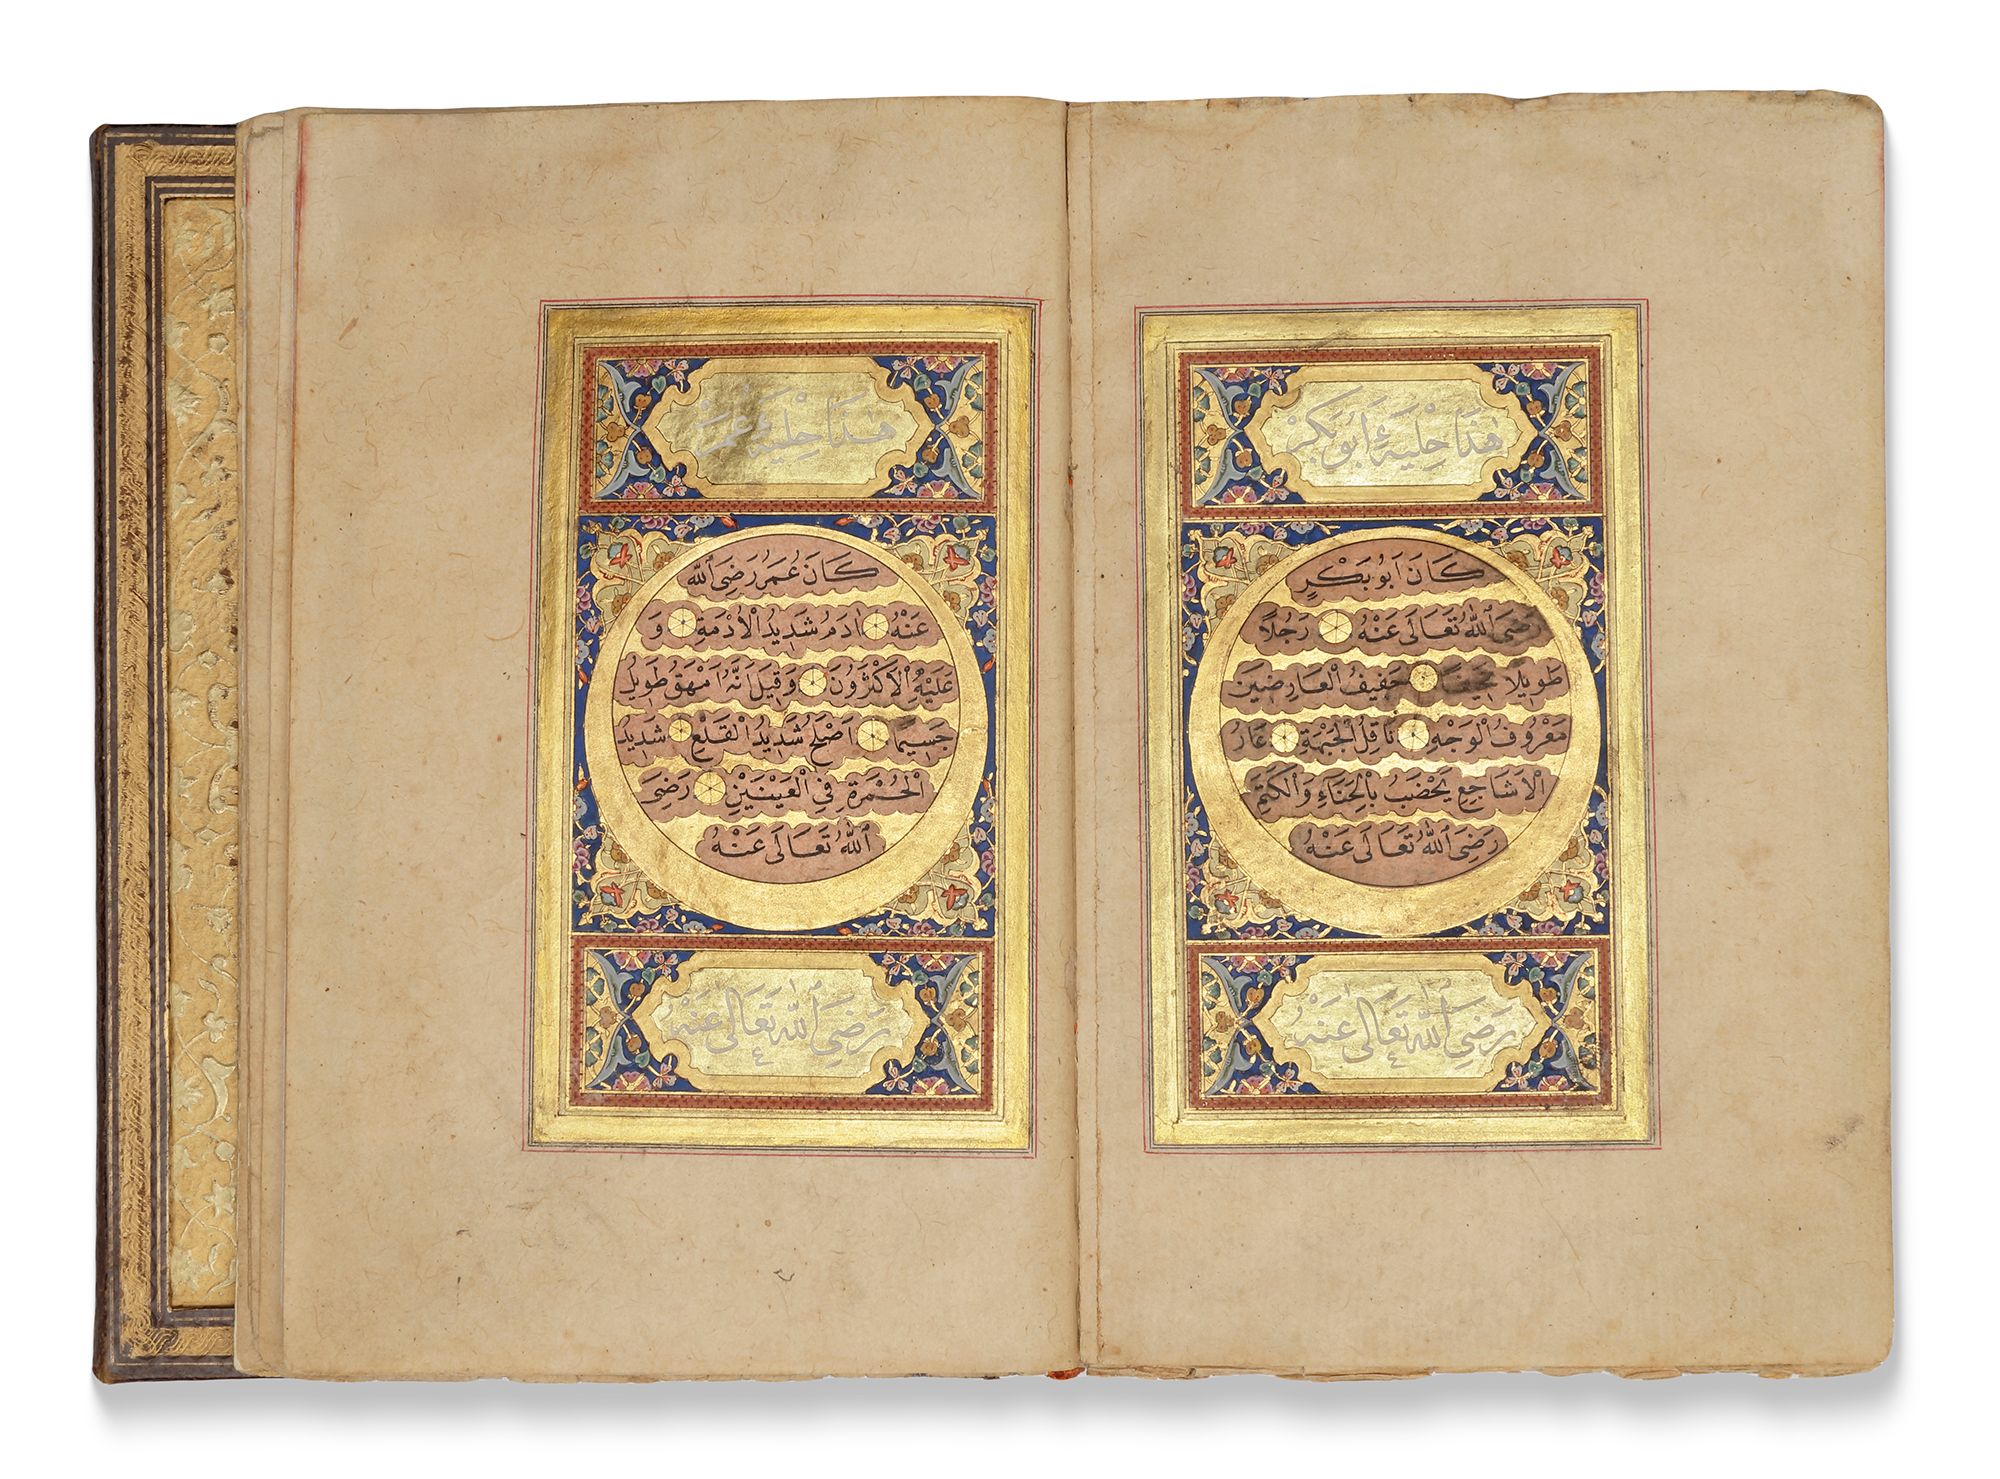 هٰذَا حِلْيَةُ اَبُو بَكْرْ
كَانَ اَبُو بَكْرٍ
رَضِىَ اللهُ تَعَالَى عَنْهُ رَجُلًا
طَوِيلًا نَحِيفًا خَفِيفُ الْعَارِضَيْنِ
مَعْرُوفُ الْوَجْهِ نَاقِلُ الْجَبْهَةِ عَارُ
الْاَشَاجِعِ يَخْضَبُ بِالْحِنَّاءِ وَالْكَتَمِ
رَضِىَ اللهُ تَعَالَى عَنْهُ
رَضِىَ اللهُ تَعَالٰى عَنْهُ
هٰذَا حِلْيَةُ عُمَرْ
كَانَ عُمَرُ رَضِىَ اللهُ
عَنْهُ اٰدَمُ شَدِيدُ الْاُدْمَةِ وَ
عَلَيْهِ الْاَكْثَرُونَ وَقِيلَ اَنَّهُ اَمْهَقُ طَوِيلُ
جَسِيمًا اَصْلَحُ شَدِيدُ الْقَلَعِ شَدِيدُ
الْحُمْرَةِ فِي الْعَيْنَيْنِ رَضِىَ
اللهُ تَعَالَى عَنْهُ
رَضِىَ اللهُ تَعَالٰى عَنْهُ